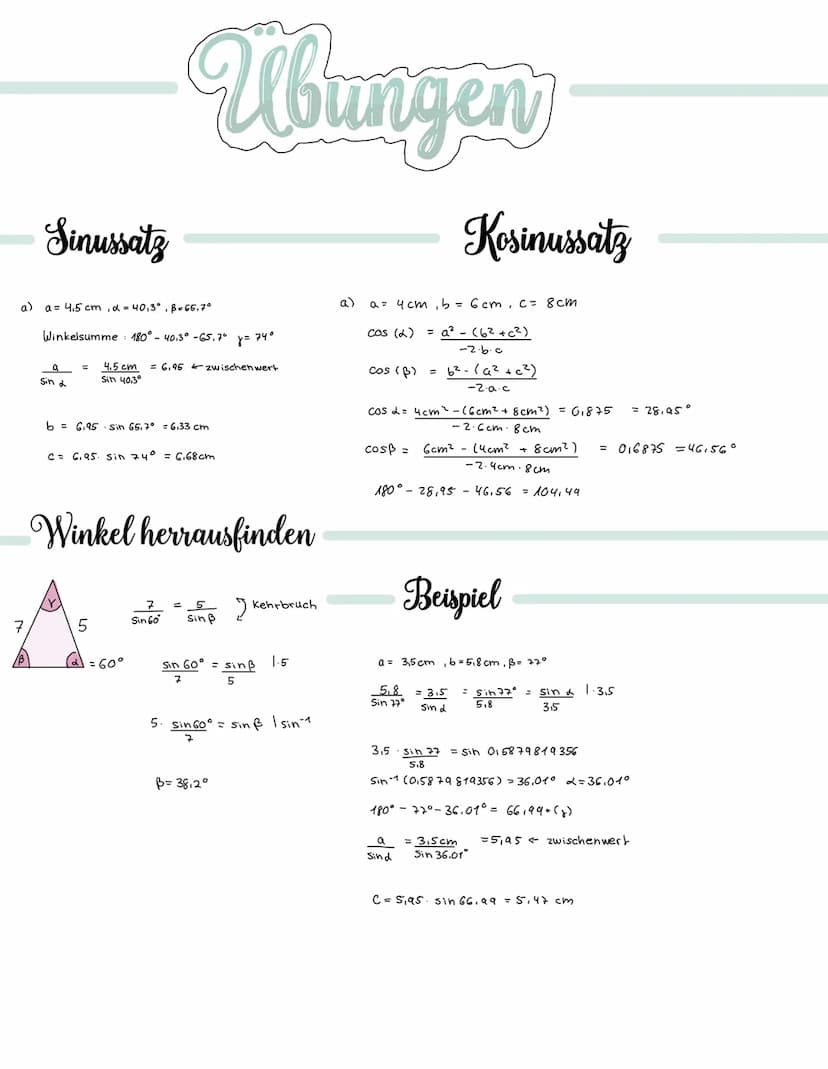 Übungen
Sinussatz
a) a = 4,5 cm , α = 40,3° , β = 65,7°
Winkelsumme : 180° - 40,3° - 65,7° γ = 74°
a / sin α = 4,5 cm / sin 40,3° = 6,95 ← zwischenwert
b = 6,95 · sin 65,7° = 6,33 cm
c = 6,95 · sin 74° = 6,68cm
Kosinussatz
a) a = 4 cm , b = 6 cm , c = 8 cm
cos (α) = a² - (b² + c²) / -2·b·c
cos (β) = b² - (a² + c²) / -2·a·c
cos α = 4cm² - (6cm² + 8cm²) / -2·6cm·8cm = 0,875 = 28,95°
cosβ = 6cm² - (4cm² + 8cm²) / -2·4cm·8cm = 0,6875 = 46,56°
180° - 28,95 - 46,56 = 104,49
Winkel herrausfinden
γ
7 5
β α = 60°
7 / sin 60° = 5 / sin β Kehrbruch
sin 60° / 7 = sin β / 5 | · 5
5 · sin 60° / 7 = sin β | sin⁻¹
β = 38,2°
Beispiel
a = 3,5cm , b = 5,8 cm , β = 77°
5,8 / sin 77° = 3,5 / sin α = sin 77° / 5,8 = sin α / 3,5 | · 3,5
3,5 · sin 77 / 5,8 = sin 0,5879819356
sin⁻¹ (0,5879819356) = 36,01° α = 36,01°
180° - 77° - 36,01° = 66,99° (γ)
a / sin α = 3,5cm / sin 36,01° = 5,95 ← zwischenwert
C = 5,95 · sin 66,99 = 5,47 cm